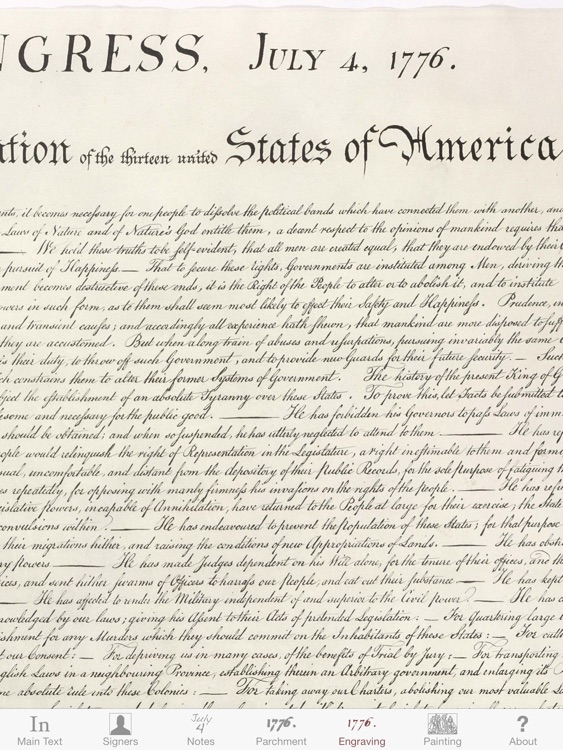 NGRESS, JULY 4, 1776.
ation of the thirteen united States of America
nts, it becomes necessary for one people to dissolve the political bands which have connected them with another, an
Laws of Nature and of Nature's God entitle them, a decent respect to the opinions of mankind requires tha
— We hold these truths to be self-evident, that all men are created equal, that they are endowed by their
pursuit of Happiness.— That to secure these rights, Governments are instituted among Men, deriving th
ment becomes destructive of these ends, it is the Right of the People to alter or to abolish it, and to institute
owers in such form, as to them shall seem most likely to effect their Safety and Happiness. Prudence, in
and transient causes; and accordingly all experience hath shewn, that mankind are more disposed to suff
they are accustomed. But when a long train of abuses and usurpations, pursuing invariably the same
is their duty, to throw off such Government, and to provide new Guards for their future security. — Such
ch constrains them to alter their former Systems of Government. The history of the present King of G
bject the establishment of an absolute Tyranny over these States. To prove this, let Facts be submitted t
lesome and necessary for the public good. — He has forbidden his Governors to pass Laws of imm
should be obtained; and when so suspended, he has utterly neglected to attend to them — He has re
ople would relinquish the right of Representation in the Legislature, a right inestimable to them and form
sual, uncomfortable, and distant from the depository of their public Records, for the sole purpose of fatiguing th
es repeatedly, for opposing with manly firmness his invasions on the rights of the people. — He has refu
gislative powers, incapable of Annihilation, have returned to the People at large for their exercise; the State
convulsions within. — He has endeavoured to prevent the population of these States; for that purpose
their migrations hither, and raising the conditions of new Appropriations of Lands. — He has obstr
ry powers — He has made Judges dependent on his Will alone, for the tenure of their offices, and th
ices, and sent hither swarms of Officers to harrass our people, and eat out their substance — He has kept
— He has affected to render the Military independent of and superior to the Civil power. — He has c
nowledged by our laws; giving his Assent to their Acts of pretended Legislation: — For Quartering large
ishment for any Murders which they should commit on the Inhabitants of these States: — For cutti
t our Consent: — For depriving us in many cases, of the benefits of Trial by Jury: — For transporting
glish Laws in a neighbouring Province, establishing therein an Arbitrary government, and enlarging its
ne absolute rule into these Colonies: — For taking away our Charters, abolishing our most valuable La
In July 4 1776. 1776. ?
Main Text Signers Notes Parchment Engraving Painting About